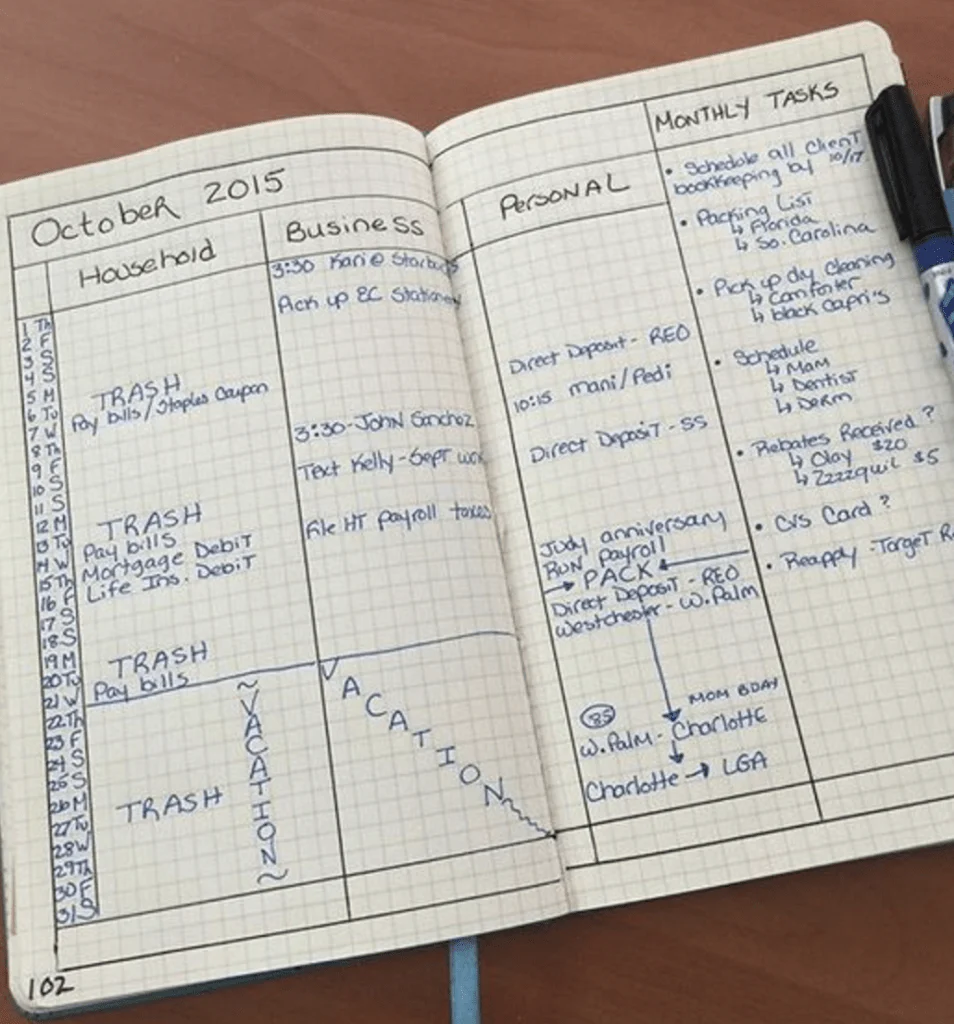 October 2015
Household
Business
1 Th
2 F
3 S
4 S
5 M
6 Tu
7 W
8 Th
9 F
10 S
11 S
12 M
13 Tu
14 W
15 Th
16 F
17 S
18 S
19 M
20 Tu
21 W
22 Th
23 F
24 S
25 S
26 M
27 Tu
28 W
29 Th
30 F
31 S
TRASH
Pay bills/Staples Coupon
TRASH
Pay bills
Mortgage Debit
Life Ins. Debit
TRASH
Pay bills
TRASH
~VACATION~
3:30 Kari @ Starbucks
Pick up EC
3:30-John Sanchez
Text Kelly-Sept
File HT payroll taxes
VACATION
102
Personal
Direct Deposit - REO
10:15 mani/Pedi
Direct Deposit - SS
Judy anniversary
Run payroll
→ PACK ←
Direct Deposit - REO
Westchester - W.Palm
MOM BDAY
85
W.Palm - Charlotte
Charlotte → LGA
MONTHLY TASKS
• Schedule all Client
bookkeeping by 10/17.
• Packing List
↳ Florida
↳ So. Carolina
• Pick up dry cleaning
↳ Comforter
↳ black Capri's
• Schedule
↳ Mam
↳ Dentist
↳ Derm
• Rebates Received ?
↳ Olay $20
↳ Zzzzquil $5
• CVS Card ?
• Reapply - Target